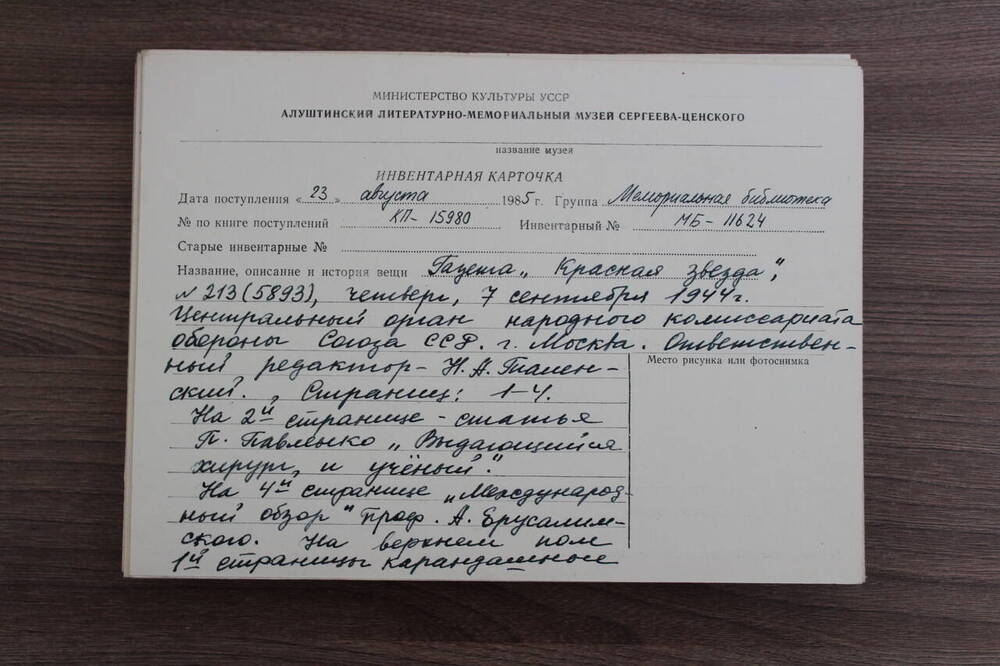 МИНИСТЕРСТВО КУЛЬТУРЫ УССР
АЛУШТИНСКИЙ ЛИТЕРАТУРНО-МЕМОРИАЛЬНЫЙ МУЗЕЙ СЕРГЕЕВА-ЦЕНСКОГО
название музея
ИНВЕНТАРНАЯ КАРТОЧКА
Дата поступления «23» августа 1985 г. Группа Мемориальная библиотека
№ по книге поступлений КП-15980 Инвентарный № МБ-11624
Старые инвентарные №
Название, описание и история вещи Газета „Красная звезда",
№ 213 (5893), четверг, 7 сентября 1944г.
Центральный орган народного комиссариата
обороны Союза ССР. г. Москва. Ответствен-
ный редактор - Н.А. Тален-
ский. Страниц: 1-4.
Место рисунка или фотоснимка
На 2й странице - статья
П. Павленко „Выдающийся
хирург и учёный".
На 4й странице „Международ-
ный обзор" проф. А. Ерусалим-
ского. На верхнем поле
1й страницы карандашные